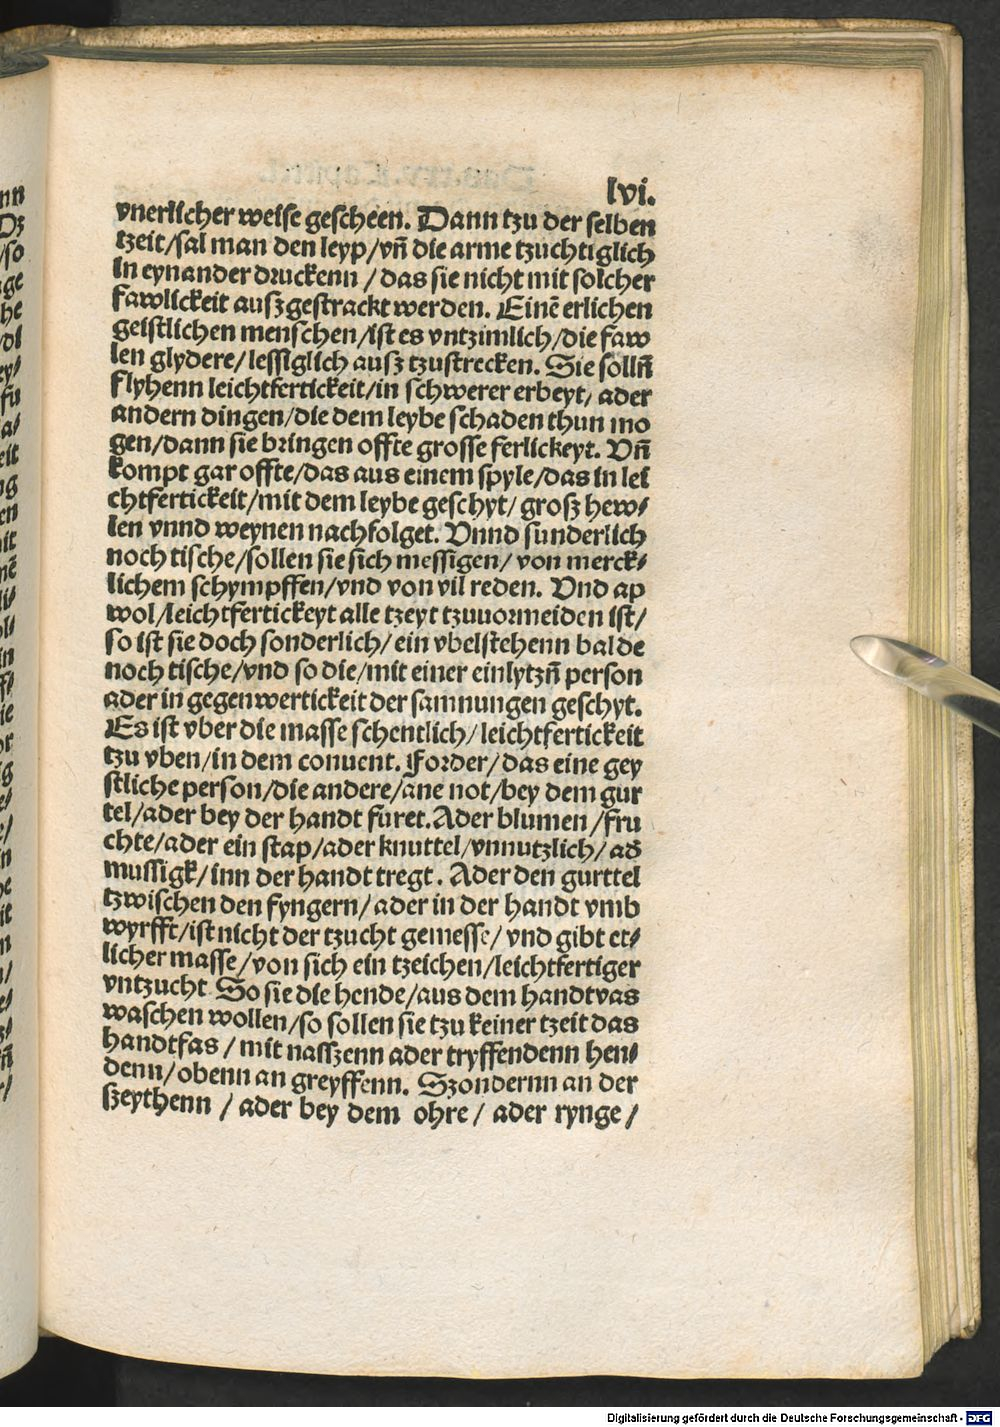 lvi.
vnerlicher weise gescheen. Dann tzu der selben
tzeit/sal man den leyp/vn̄ die arme tzuchtiglich
in eynander druckenn/das sie nicht mit solcher
fawlickeit ausz gestrackt werden. Einē erlichen
geistlichen menschen/ist es vntzimlich/die faw
len glydere/lessiglich ausz tzustrecken. Sie solln̄
flyhenn leichtfertickeit/in schwerer erbeyt/ ader
andern dingen/die dem leybe schaden thun mo
gen/dann sie bringen offte grosse ferlickeyt. Vn̄
kompt gar offte/das aus einem spyle/das in lei
chtfertickeit/mit dem leybe geschyt/ grosz hew⸗
len vnnd weynen nachfolget. Vnnd sunderlich
noch tische/sollen sie sich messigen/ von merck⸗
lichem schympffen/vnd von vil reden. Vnd ap
wol/leichtfertickeyt alle tzeyt tzuuormeiden ist/
so ist sie doch sonderlich/ ein vbelstehenn balde
noch tische/vnd so die/mit einer einlytzn̄ person
ader in gegenwertickeit der samnungen geschyt.
Es ist vber die masse schentlich/leichtfertickeit
tzu vben/in dem conuent. Forder/das eine gey
stliche person/die andere/ane not/bey dem gur
tel/ader bey der handt furet. Ader blumen/fru
chte/ader ein stap/ader knuttel/vnnutzlich/ ad
mussigk/inn der handt tregt. Ader den gurttel
tzwischen den fyngern/ader in der handt vmb
wyrfft/ist nicht der tzucht gemesse/ vnd gibt et⸗
licher masse/von sich ein tzeichen/leichtfertiger
vntzucht So sie die hende/aus dem handtvas
waschen wollen/so sollen sie tzu keiner tzeit das
handtfas/ mit nasszenn ader tryffendenn hen⸗
denn/obenn an greyffenn. Szondernn an der
szeythenn/ ader bey dem ohre/ ader rynge/
Digitalisierung gefördert durch die Deutsche Forschungsgemeinschaft - DFG